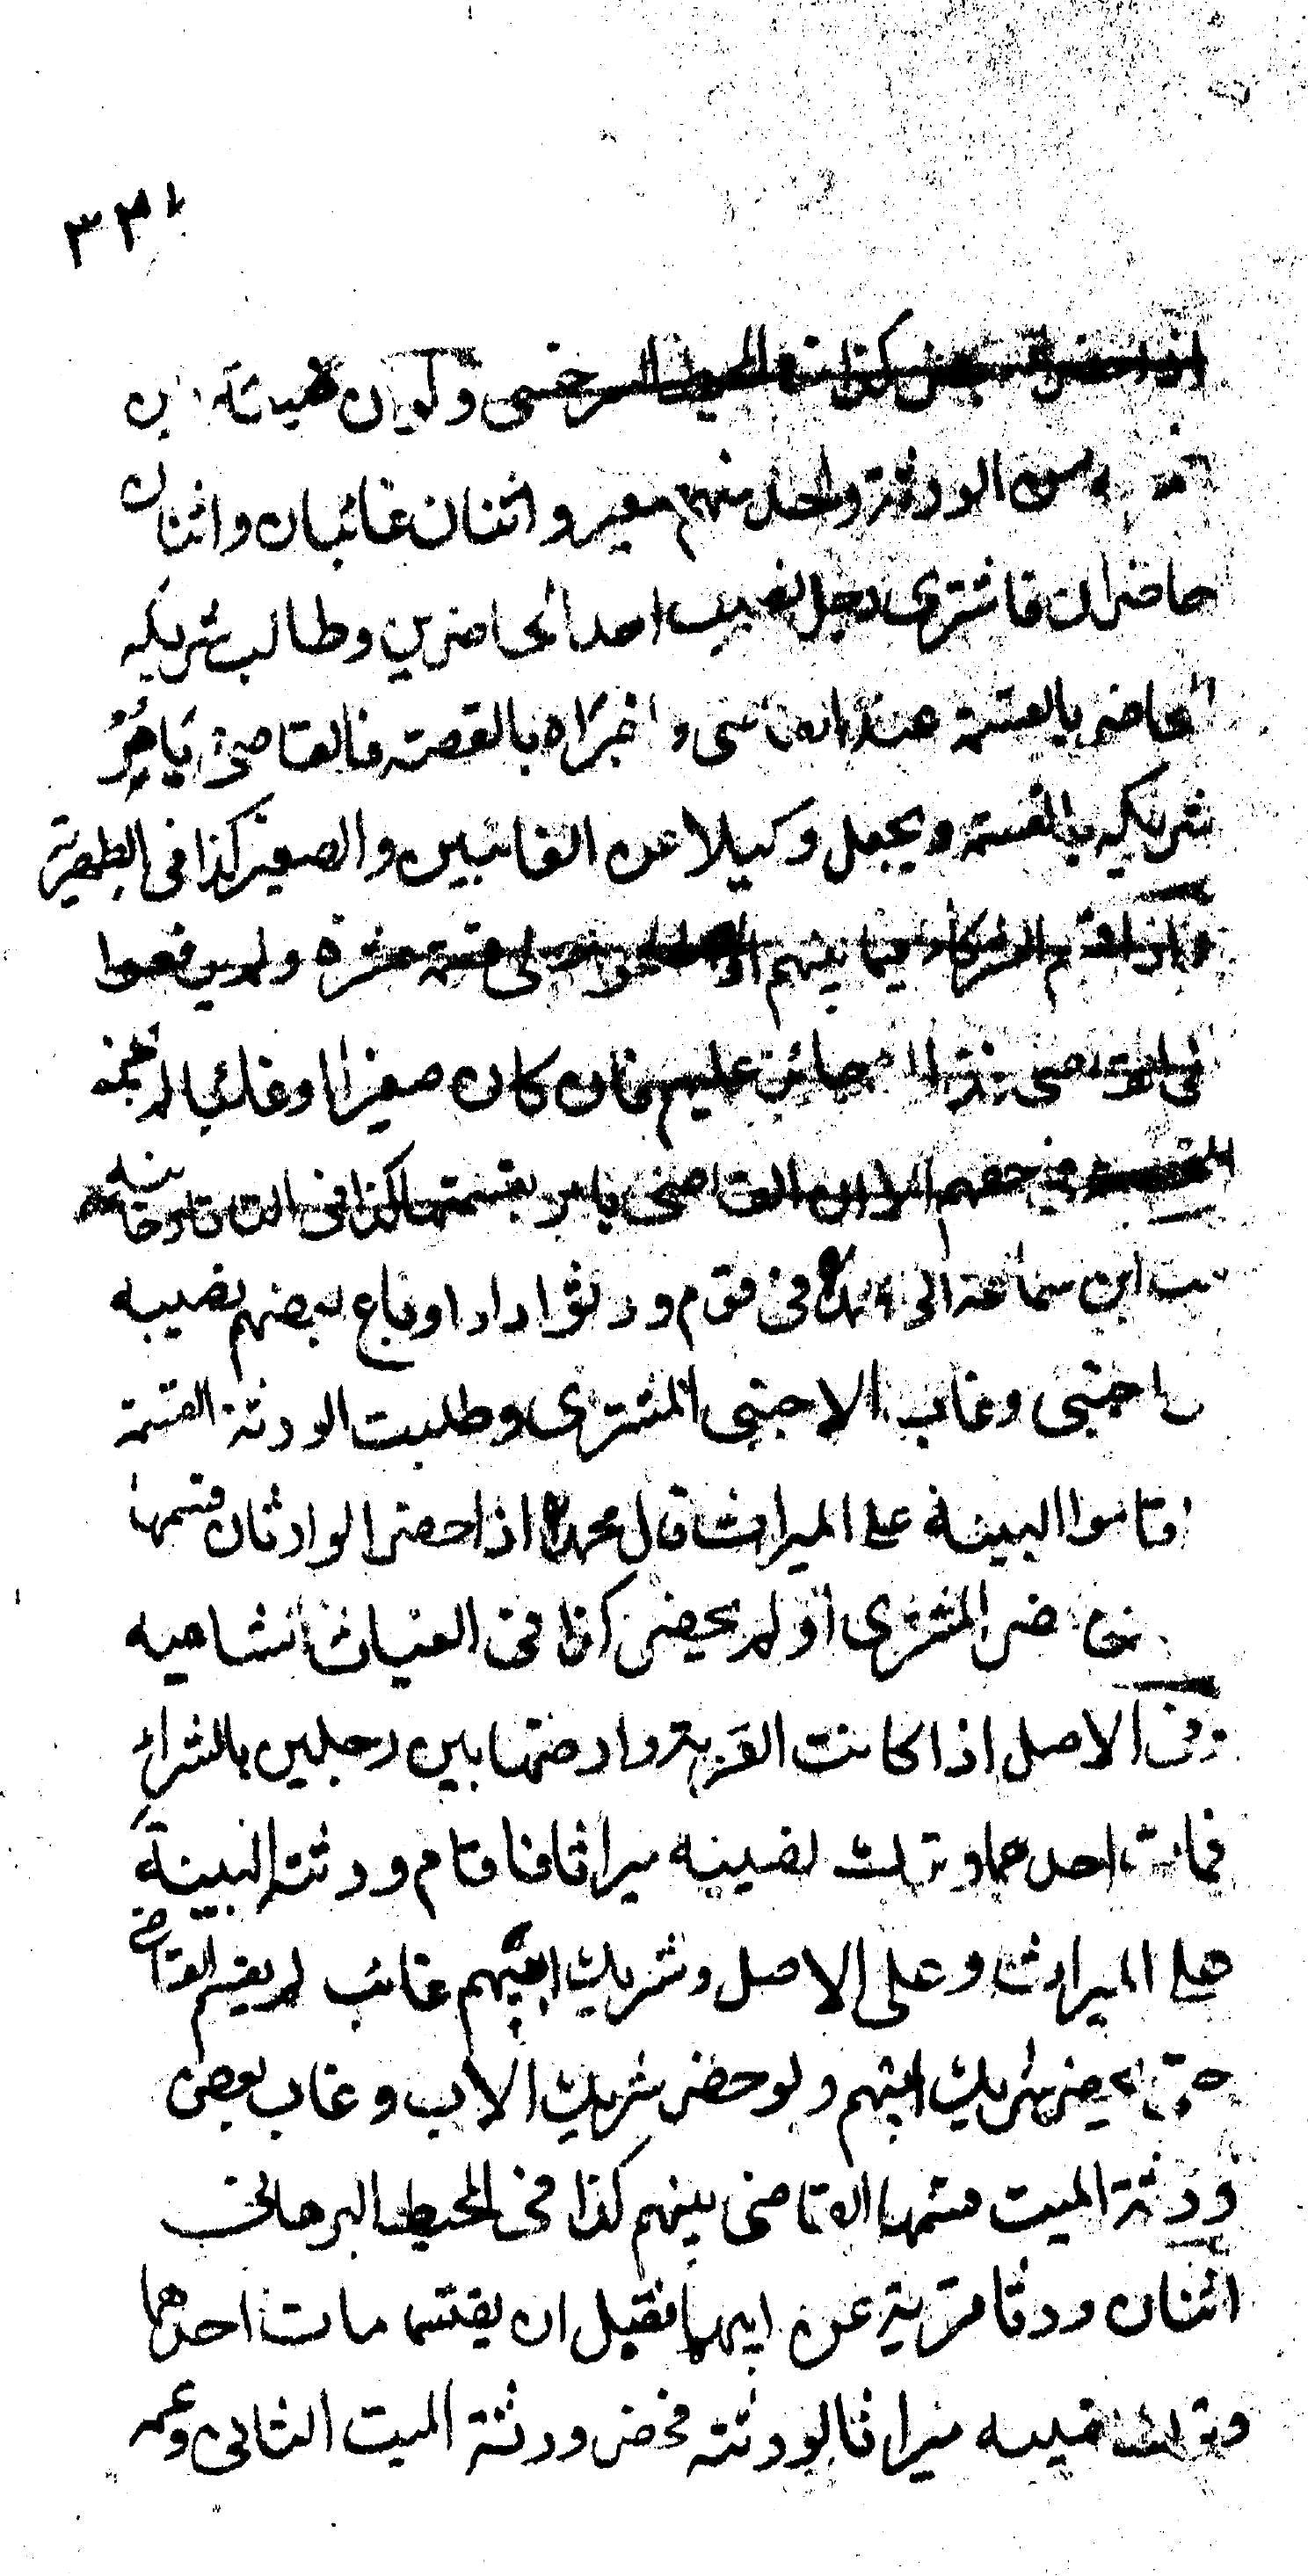 ٣٣١
كذا في المحيط السرخسي ولو ان ضيعة بين
خمسة من الورثة واحد منهم صغير واثنان غائبان واثنان
حاضران فاشترى رجل نصيب احد الحاضرين وطالب شريكه
الحاضر بالقسمة عند القاضي واخبراه بالقصة فالقاضي يامر
شريكه بالقسمة ويجعل وكيلا عن الغائبين والصغير كذا في الظهيرية
واذا قسم الشركاء فيما بينهم واصطلحوا على قسمة ولم يرفعوا
الى القاضي جائز عليهم فان كان صغيرا او غائبا لم تجز
القسمة في حقهم الا ان القاضي يامر بقسمتها كذا في التاتارخانية
كتب ابن سماعة الى محمد في قوم ورثوا دارا وباع بعضهم نصيبه
من اجنبي وغاب الاجنبي المشتري وطلبت الورثة القسمة
واقاموا البينة على الميراث قال محمد اذا حضر الوارثان قسمها
حضر المشتري او لم يحضر كذا في
وفي الاصل اذا كانت القرية وارضها بين رجلين بالشراء
فمات احدهما وترك نصيبه ميراثا فاقام ورثته البينة
على الميراث وعلى الاصل وشريك ابيهم غائب لم يقسم القاضي
حتى يحضر شريك ابيهم ولو حضر شريك الاب وغاب بعض
ورثة الميت قسمها القاضي بينهم كذا في المحيط البرهاني
اثنان ورثا قرية عن ابيهما فقبل ان يقتسما مات احدهما
وترك نصيبه ميراثا لورثته فحضر ورثة الميت الثاني وعمه